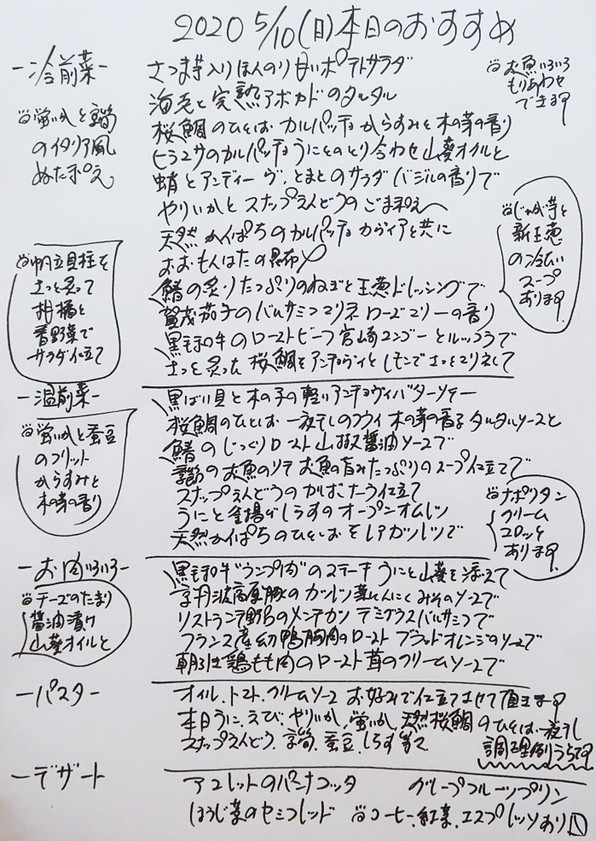 2020 5/10(日)本日のおすすめ
ー冷前菜ー
さつま芋入りほんのり甘いポテトサラダ
海老と完熟アボカドのタルタル
桜鯛のひとしお カルパッチョ からすみと木の芽の香り
ヒラマサのカルパッチョ うにとのとり合わせ 山葵オイルと
蛸とアンディーヴ、とまとのサラダ バジルの香りで
やりいかとスナップえんどうのごま和え
天然かんぱちのカルパッチョ カヴィアと共に
おおもんはたの昆布〆
鰆の炙り たっぷりのねぎと玉葱ドレッシングで
賀茂茄子のバルサミコマリネ ローズマリーの香り
黒毛和牛のローストビーフ 宮崎マンゴーとルッコラで
さっと炙った桜鯛をアンチョヴィとレモンでさっとマリネして
お魚いろいろ
もりあわせ
できます
蛍いかと
のイタリア風
ぬた
帆立貝柱を
さっと炙って
柑橘と
香野菜で
サラダ仕立て
じゃが芋と
新玉葱
の冷たい
スープ
あります
ー温前菜ー
黒ばい貝と木の子の軽いアンチョヴィバターソテー
桜鯛のひとしお 一夜干しのフライ 木の芽の香る タルタルソースと
鰆のじっくりロースト 山椒醤油ソースで
お魚のソテー お魚の旨みたっぷりのスープ仕立てで
スナップえんどうのカルボナーラ仕立て
うにと釜揚げしらすのオープンオムレツ
天然かんぱちのひとしおをレアカツレツで
蛍いかと蚕豆
のフリット
からすみと
木の芽の香り
ナポリタン
クリーム
コロッケ
あります
ーお肉いろいろー
黒毛和牛"ランプ肉"のステーキ うにと山葵を添えて
京丹波高原豚のカツレツ 葉にんにくみそのソースで
リストランテ野呂のメンチカツ デミグラスバルサミコで
フランス産幼鴨胸肉のロースト ブラッドオレンジのソースで
朝引き鶏もも肉のロースト 茸のクリームソースで
チーズのたまり
醤油漬け
山葵オイルと
ーパスター
オイル、トマト、クリームソース お好みで仕立てさせて頂きます
本日うに、えび、やりいか、蛍いか、天然桜鯛のひとしお一夜干し
スナップえんどう、京筍、蚕豆、しらす等々
調理例うらです
ーデザート
アフォガートのパンナコッタ グレープフルーツプリン
ほうじ茶のセミフレッド コーヒー、紅茶、エスプレッソあり